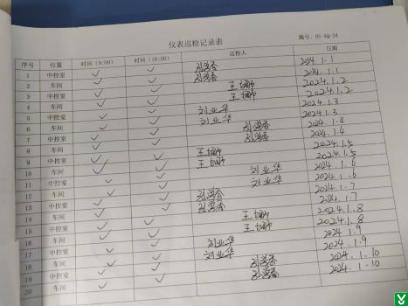 仪表巡检记录表
编号:
序号 位置 时间(9:00) 时间(16:00) 巡检人 日期
1 中控室 ✓ ✓ 2024.1.1
2 车间 ✓ ✓ 2024.1.1
3 中控室 ✓ ✓ 王 2024.1.2
4 车间 ✓ ✓ 王 2024.1.2
5 中控室 ✓ ✓ 刘业华 2024.1.3
6 车间 ✓ ✓ 刘业华 2024.1.3
7 中控室 ✓ ✓ 2024.1.4
8 车间 ✓ ✓ 2024.1.4
9 中控室 ✓ ✓ 王 2024.1.5
10 车间 ✓ ✓ 王 2024.1.5
11 中控室 ✓ ✓ 刘业华 2024.1.6
12 车间 ✓ ✓ 刘业华 2024.1.6
13 中控室 ✓ ✓ 2024.1.7
14 车间 ✓ ✓ 2024.1.7
15 中控室 ✓ ✓ 王 2024.1.8
16 车间 ✓ ✓ 王 2024.1.8
17 中控室 ✓ ✓ 刘业华 2024.1.9
18 车间 ✓ ✓ 刘业华 2024.1.9
19 中控室 ✓ ✓ 2024.1.10
20 车间 ✓ ✓ 2024.1.10